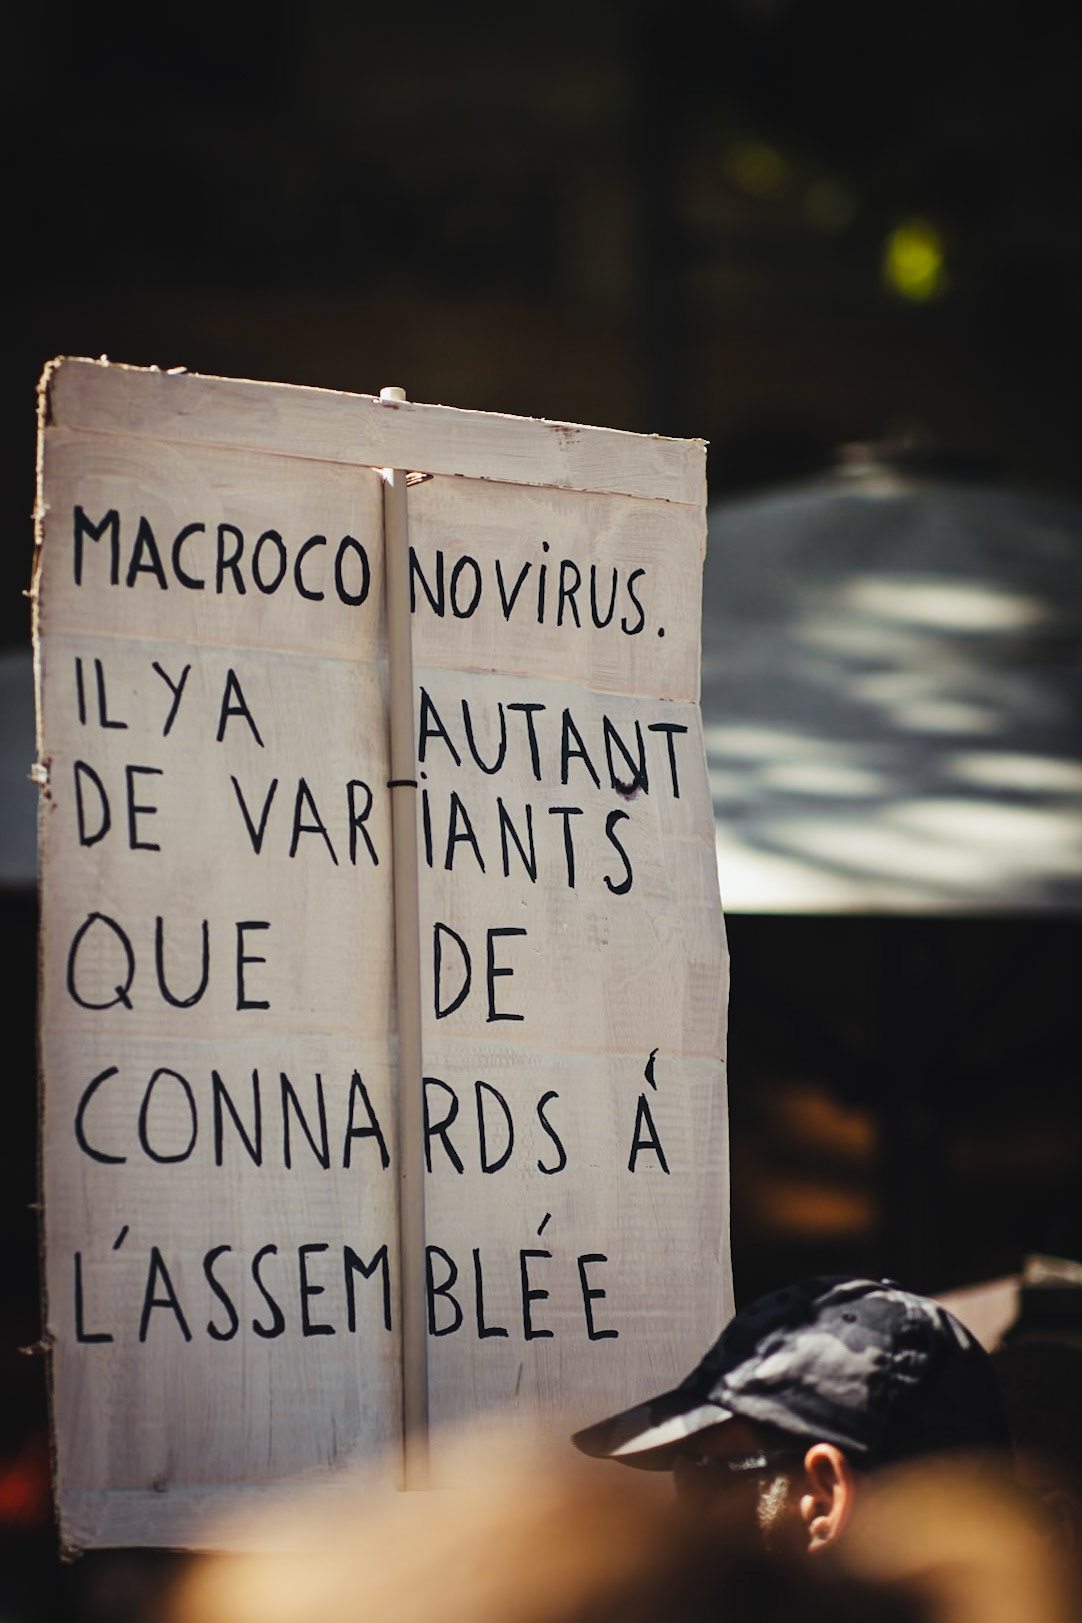 MACROCONOVIRUS.
IL Y A AUTANT
DE VARIANTS
QUE DE
CONNARDS Á
L'ASSEMBLÉE